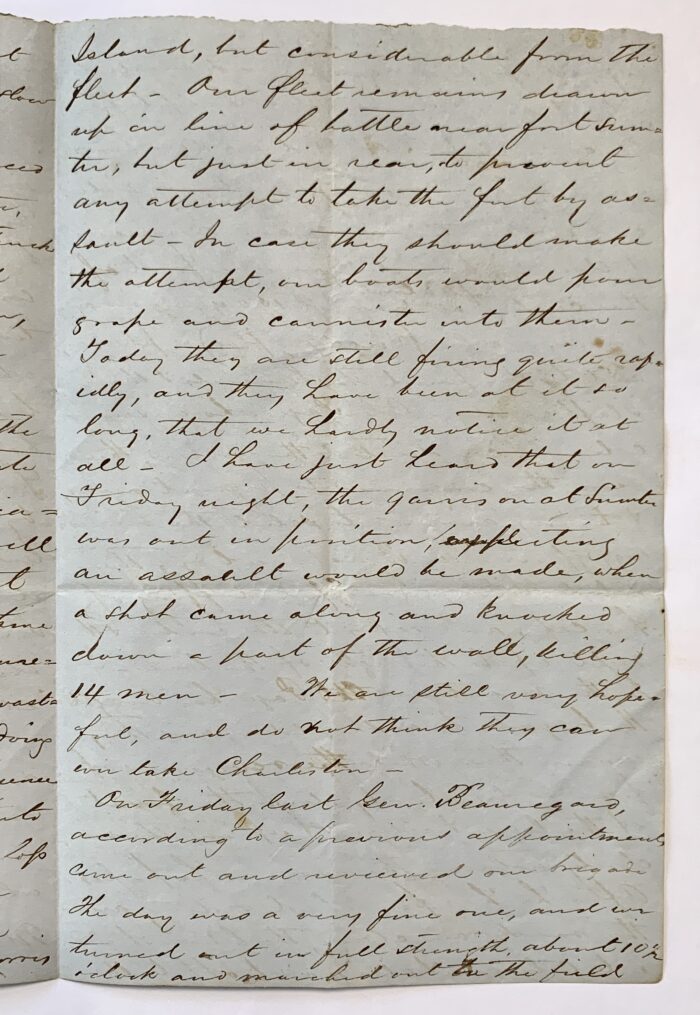 Island, but considerable from the
fleet - Our fleet remains drawn
up in line of battle near fort Sum=
ter, but just in rear, to prevent
any attempt to take the fort by as=
sault - In case they should make
the attempt, our boats would pour
grape and cannister into them -
Today they are still firing quite rap=
idly, and they have been at it so
long, that we hardly notice it at
all - I have just heard that on
Friday night, the garrison at Sumter
was out in position, expecting
an assault would be made, when
a shot came along and knocked
down a part of the wall, killing
14 men - We are still very hope=
ful, and do not think they can
ever take Charleston -
On Friday last Gen. Beauregard,
according to a previous appointment
came out and reviewed our brigade
The day was a very fine one, and we
turned out in full strength, about 10 1/2
o'clock and marched out to the field
slow
Truck
the
ell
doing